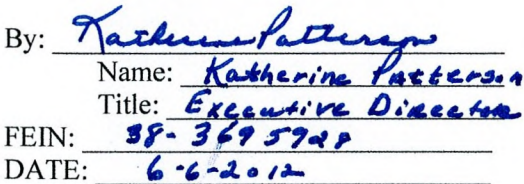 By: Katherine Patterson
Name: Katherine Patterson
Title: Executive Director
FEIN: 38-3695928
DATE: 6-6-2012